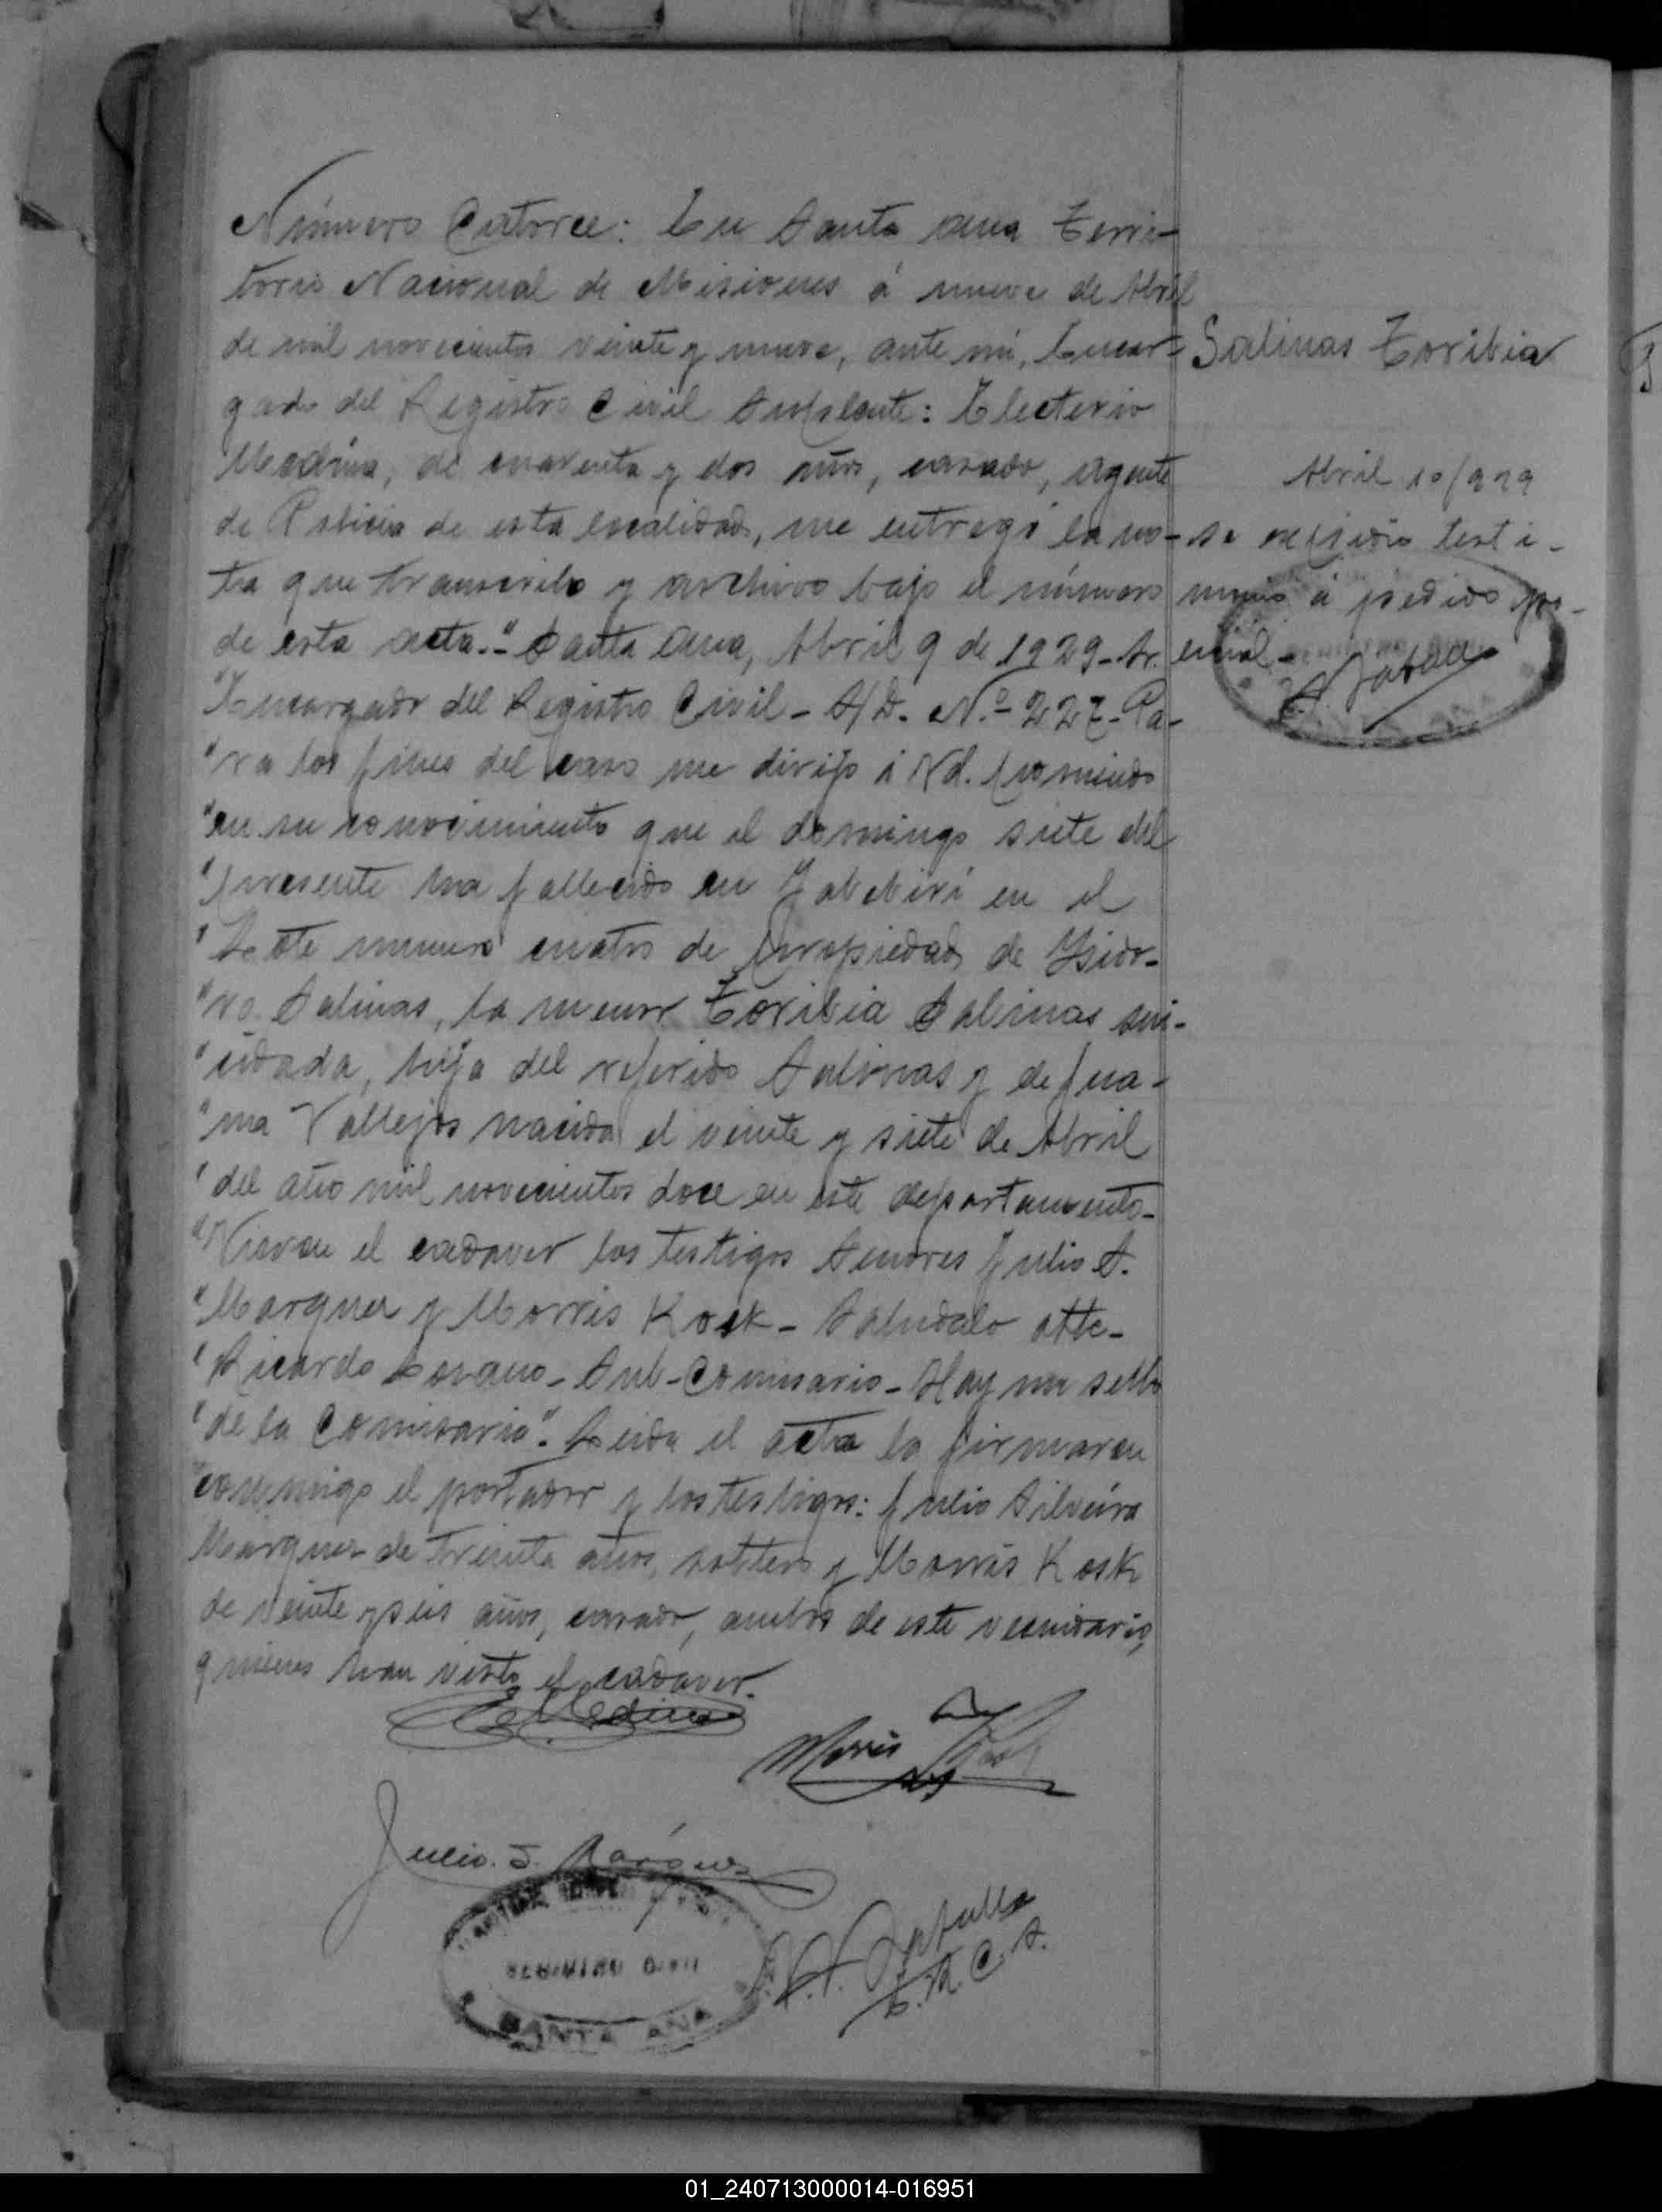 Número Catorce: En Santa Ana Terri-
torio Nacional de Misiones á nueve de Abril
de mil novecientos veinte y nueve, ante mí, Encar-
gado del Registro Civil Suplente: Electerio
Medina, de cuarenta y dos años, casado, agente
de Policia de esta localidad, me entregó la no-
ta que transcribo y archivo bajo el número
de esta acta.-" Santa Ana, Abril 9 de 1929- Sr.
"Encargado del Registro Civil - S/D. N.º 227- Pa-
"ra los fines del caso me dirijo á Vd. poniendo
"en su conocimiento que el domingo siete del
"presente ha fallecido en Yabebirí en el
"Lote numero cuatro de propiedad de Ysido-
"ro Salinas, la menor Toribia Salinas sui-
"cidada, hija del referido Salinas y de Jua-
"na Vallejos nacida el veinte y siete de Abril
"del año mil novecientos doce en este departamento-
"Vieron el cadaver los testigos Señores Julio S.
"Marquez y Morris Kosk - Saludalo atte-
"Ricardo Lozano - Sub-Comisario - Hay un sello
"de la Comisaria". Leida el acta la firmaron
conmigo el portador y los testigos: Julio Silveira
Márquez de treinta años, soltero y Morris Kosk
de veinte y seis años, casado, ambos de este vecindario,
quienes han visto el cadaver.
E. Medina
Morris Kosk
Julio. S. Márquez
REGISTRO CIVIL
SANTA ANA
E.R.C.S.
Salinas Toribia
Abril 10/929
se expidio testi-
monio á pedido po-
licial-
01_240713000014-016951